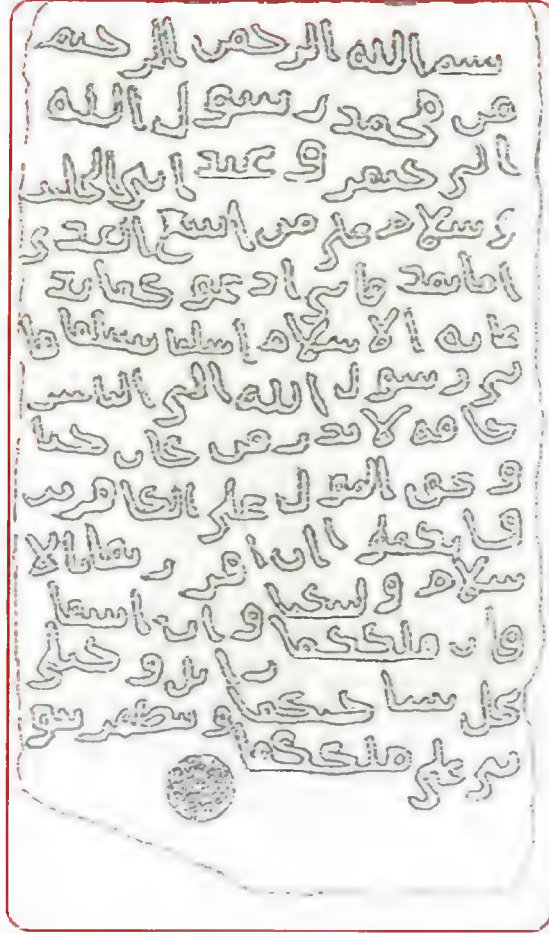 بسم الله الرحمن الرحيم
من محمد رسول الله
الى جيفر و عبد ابنى الجلند
ى سلام على من اتبع الهدى
اما بعد فانى ادعوكما بد
عايه الاسلام اسلما تسلما فا
نى رسول الله الى الناس
كافه لانذر من كان حيا
و يحق القول على الكافرين
و انكما ان اقررتما بالا
سلام وليتكما و ان ابيتما
فان ملككما زايل و خيلى
تحل بساحتكما و تظهر نبو
تى على ملككما